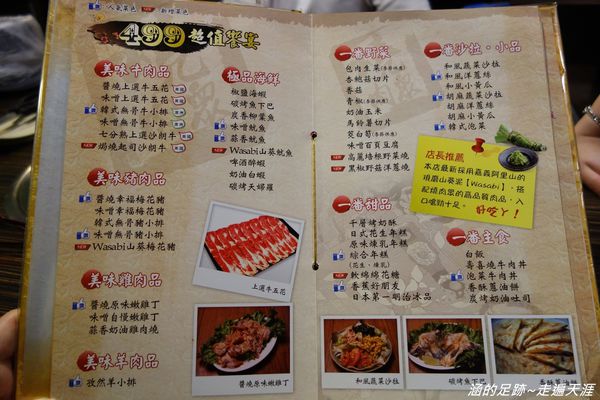 人氣菜色 NEW 新增菜色
499超值饗宴
美味牛肉品
醬燒上選牛五花
味噌上選牛五花
韓式無骨牛小排
味噌無骨牛小排
七分熟上選沙朗牛
NEW 焗燒起司沙朗牛
美味豬肉品
醬燒幸福梅花豬
味噌幸福梅花豬
韓式無骨豬小排
味噌無骨豬小排
NEW Wasabi山葵梅花豬
美味雞肉品
醬燒原味嫩雞丁
味噌自慢嫩雞丁
蒜香奶油雞肉燒
美味羊肉品
孜然羊小排
極品海鮮
椒鹽海蝦
碳烤魚下巴
炭香柳葉魚
味噌魷魚
蒜香魷魚
NEW Wasabi山葵魷魚
啤酒船蝦
奶油白蝦
碳烤天婦羅
上選牛五花
醬燒原味嫩雞丁
一番野菜
包肉生菜(季節供應)
香鮑菇切片
香菇
青椒(季節供應)
奶油玉米
馬鈴薯切片
筊白筍(季節供應)
味噌百頁豆腐
NEW 高麗培根野菜燒
NEW 黑椒野菇洋蔥燒
一番甜品
千層烤奶酥
日式花生年糕
原味煉乳年糕
綜合年糕
(花生、煉乳)
NEW 軟綿綿花糖
香蕉好朋友
日本第一明治冰品
一番沙拉・小品
和風蔬菜沙拉
和風洋蔥絲
和風小黃瓜
胡麻蔬菜沙拉
胡麻洋蔥絲
韓式泡菜
店長推薦
本店最新採用嘉義阿里山的
現磨山葵泥【Wasabi】，搭
配燒肉眾的高品質肉品，入
口嗆勁十足。 好吃丫！
一番主食
白飯
壽喜燒牛肉丼
泡菜牛肉丼
香酥蔥油餅
炭烤奶油吐司
和風蔬菜沙拉
碳烤魚下巴
香酥蔥油餅
涵的足跡~走遍天涯